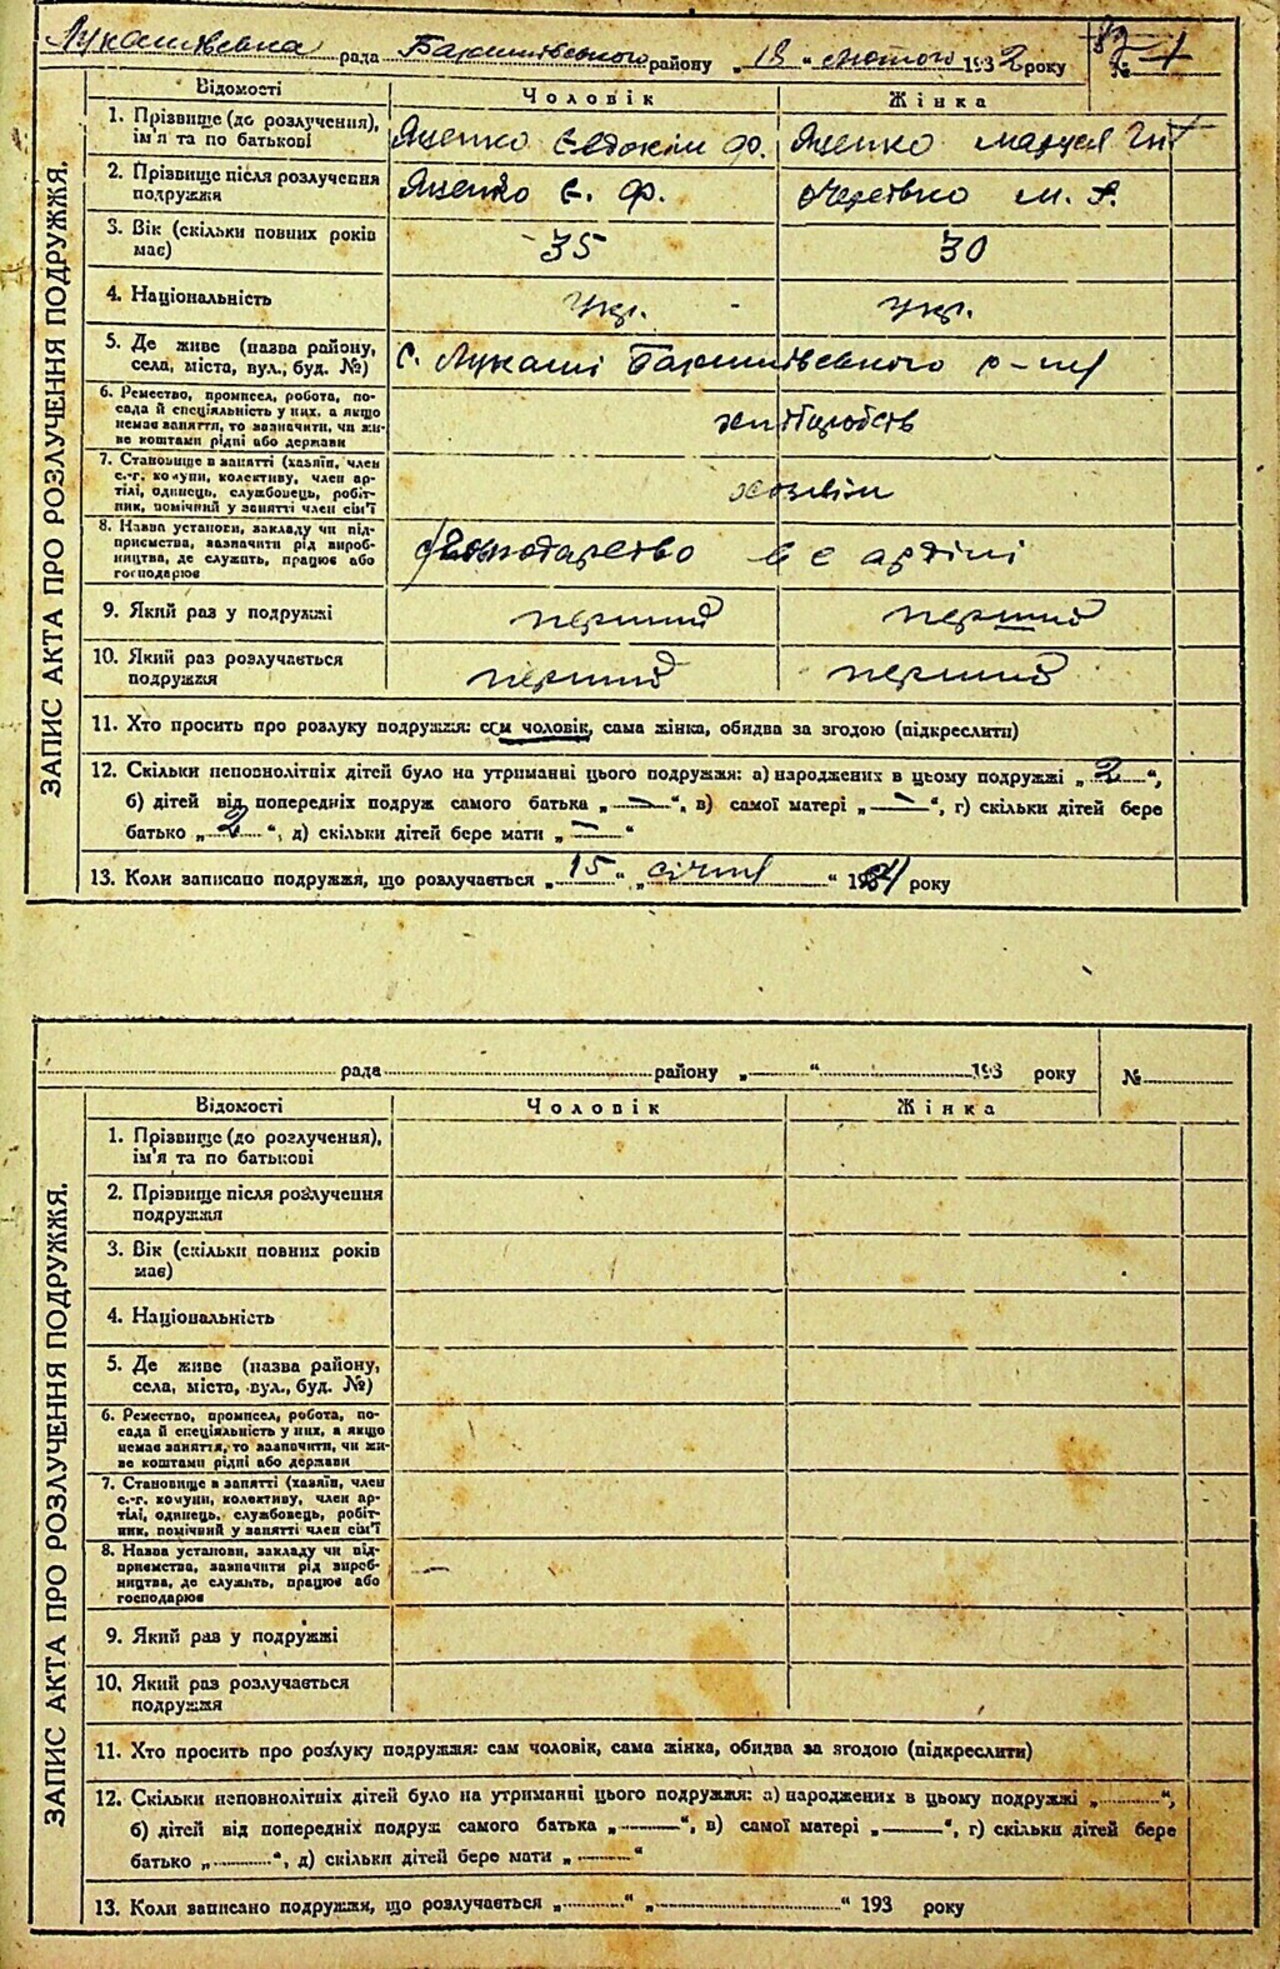 Лукашівська рада Баришівського району „18“ лютого 1932 року № 1
ЗАПИС АКТА ПРО РОЗЛУЧЕННЯ ПОДРУЖЖЯ.
Відомості Чоловік Жінка
1. Прізвище (до розлучення), ім'я та по батькові Яценко Євдоким Ф. Яценко Маруся
2. Прізвище після розлучення подружжя Яценко Є. Ф. М.
3. Вік (скільки повних років має) 35 30
4. Національність Укр. - укр.
5. Де живе (назва району, села, міста, вул., буд. №) с. Лукаші Баришівського р-ну
6. Ремество, промисел, робота, по-
сада й спеціяльність у них, а якщо
немає заняття, то зазначити, чи жи-
ве коштами рідні або держави хліборобств
7. Становище в занятті (хазяїн, член
с.-г. комуни, колективу, член ар-
тілі, одинець, службовець, робіт-
ник, помічний у занятті член сім'ї хозяїн
8. Назва установи, закладу чи під-
приємства, зазначити рід вироб-
ництва, де служить, працює або
господарює господарство в с артілі
9. Який раз у подружжі перший перший
10. Який раз розлучається
подружжя перший перший
11. Хто просить про розлуку подружжя: сам чоловік, сама жінка, обидва за згодою (підкреслити)
12. Скільки неповнолітніх дітей було на утриманні цього подружжя: а) народжених в цьому подружжі „2“,
б) дітей від попередніх подруж самого батька „—“, в) самої матері „—“, г) скільки дітей бере
батько „2“, д) скільки дітей бере мати „—“
13. Коли записано подружжя, що розлучається „15“ „січня“ року
рада району „ “ 193 року №
ЗАПИС АКТА ПРО РОЗЛУЧЕННЯ ПОДРУЖЖЯ.
Відомості Чоловік Жінка
1. Прізвище (до розлучення),
ім'я та по батькові
2. Прізвище після розлучення
подружжя
3. Вік (скільки повних років
має)
4. Національність
5. Де живе (назва району,
села, міста, вул., буд. №)
6. Ремество, промисел, робота, по-
сада й спеціяльність у них, а якщо
немає заняття, то зазначити, чи жи-
ве коштами рідні або держави
7. Становище в занятті (хазяїн, член
с.-г. комуни, колективу, член ар-
тілі, одинець, службовець, робіт-
ник, помічний у занятті член сім'ї
8. Назва установи, закладу чи під-
приємства, зазначити рід вироб-
ництва, де служить, працює або
господарює
9. Який раз у подружжі
10. Який раз розлучається
подружжя
11. Хто просить про розлуку подружжя: сам чоловік, сама жінка, обидва за згодою (підкреслити)
12. Скільки неповнолітніх дітей було на утриманні цього подружжя: а) народжених в цьому подружжі „ “,
б) дітей від попередніх подруж самого батька „ “, в) самої матері „ “, г) скільки дітей бере
батько „ “, д) скільки дітей бере мати „ “
13. Коли записано подружжя, що розлучається „ “ „ “ 193 року